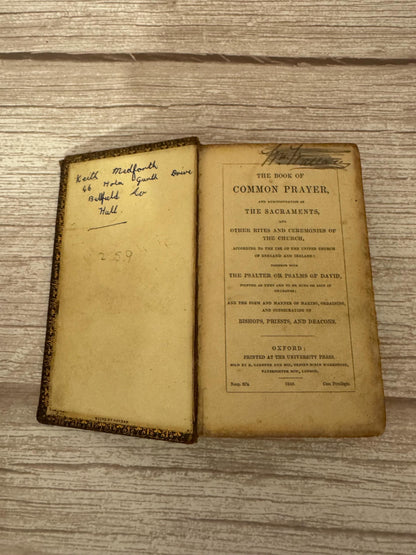 Keith Medforth
66 Hotn Garth Drive
Bilfield Av
Hull.
259
Wm Wallace
THE BOOK OF
COMMON PRAYER,
AND ADMINISTRATION OF
THE SACRAMENTS,
AND
OTHER RITES AND CEREMONIES OF
THE CHURCH,
ACCORDING TO THE USE OF THE UNITED CHURCH
OF ENGLAND AND IRELAND;
TOGETHER WITH
THE PSALTER OR PSALMS OF DAVID,
POINTED AS THEY ARE TO BE SUNG OR SAID IN
CHURCHES;
AND THE FORM AND MANNER OF MAKING, ORDAINING,
AND CONSECRATING OF
BISHOPS, PRIESTS, AND DEACONS.
OXFORD:
PRINTED AT THE UNIVERSITY PRESS.
SOLD BY E. GARDNER AND SON, OXFORD BIBLE WAREHOUSE,
PATERNOSTER ROW, LONDON.
Nonp. 32o. Cum Privilegio.